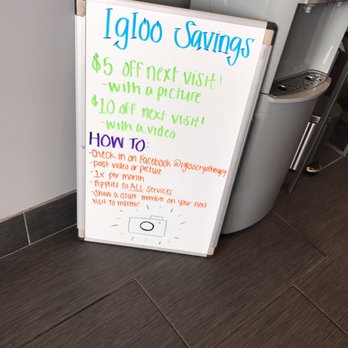 Igloo Savings
$5 off next visit!
-with a picture
$10 off next visit!
-with a video
HOW TO:
-Check in on Facebook @igloocryotherapy
-post video or picture
-1x per month
-Applies to ALL services
-Show a staff member on your next
visit to redeem!